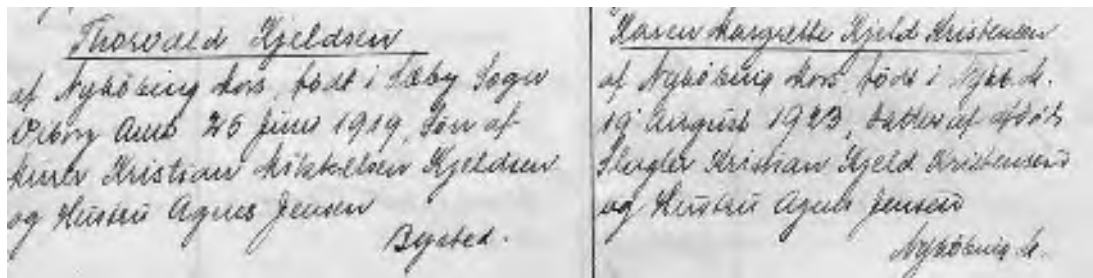 Thorvald Kjeldsen
af Nykøbing Mors, født i Sæby Sogn
Viborg Amt 26 Juni 1919, Søn af
Murer Kristian Mikkelsen Kjeldsen
og Hustru Agnes Jensen
Bysted.
Karen Margrethe Kjeld Kristensen
af Nykøbing Mors, født i Nykb. M.
19 August 1923, Datter af afdøde
Slagter Kristian Kjeld Kristensen
og Hustru Agnes Jensen
Nykøbing M.